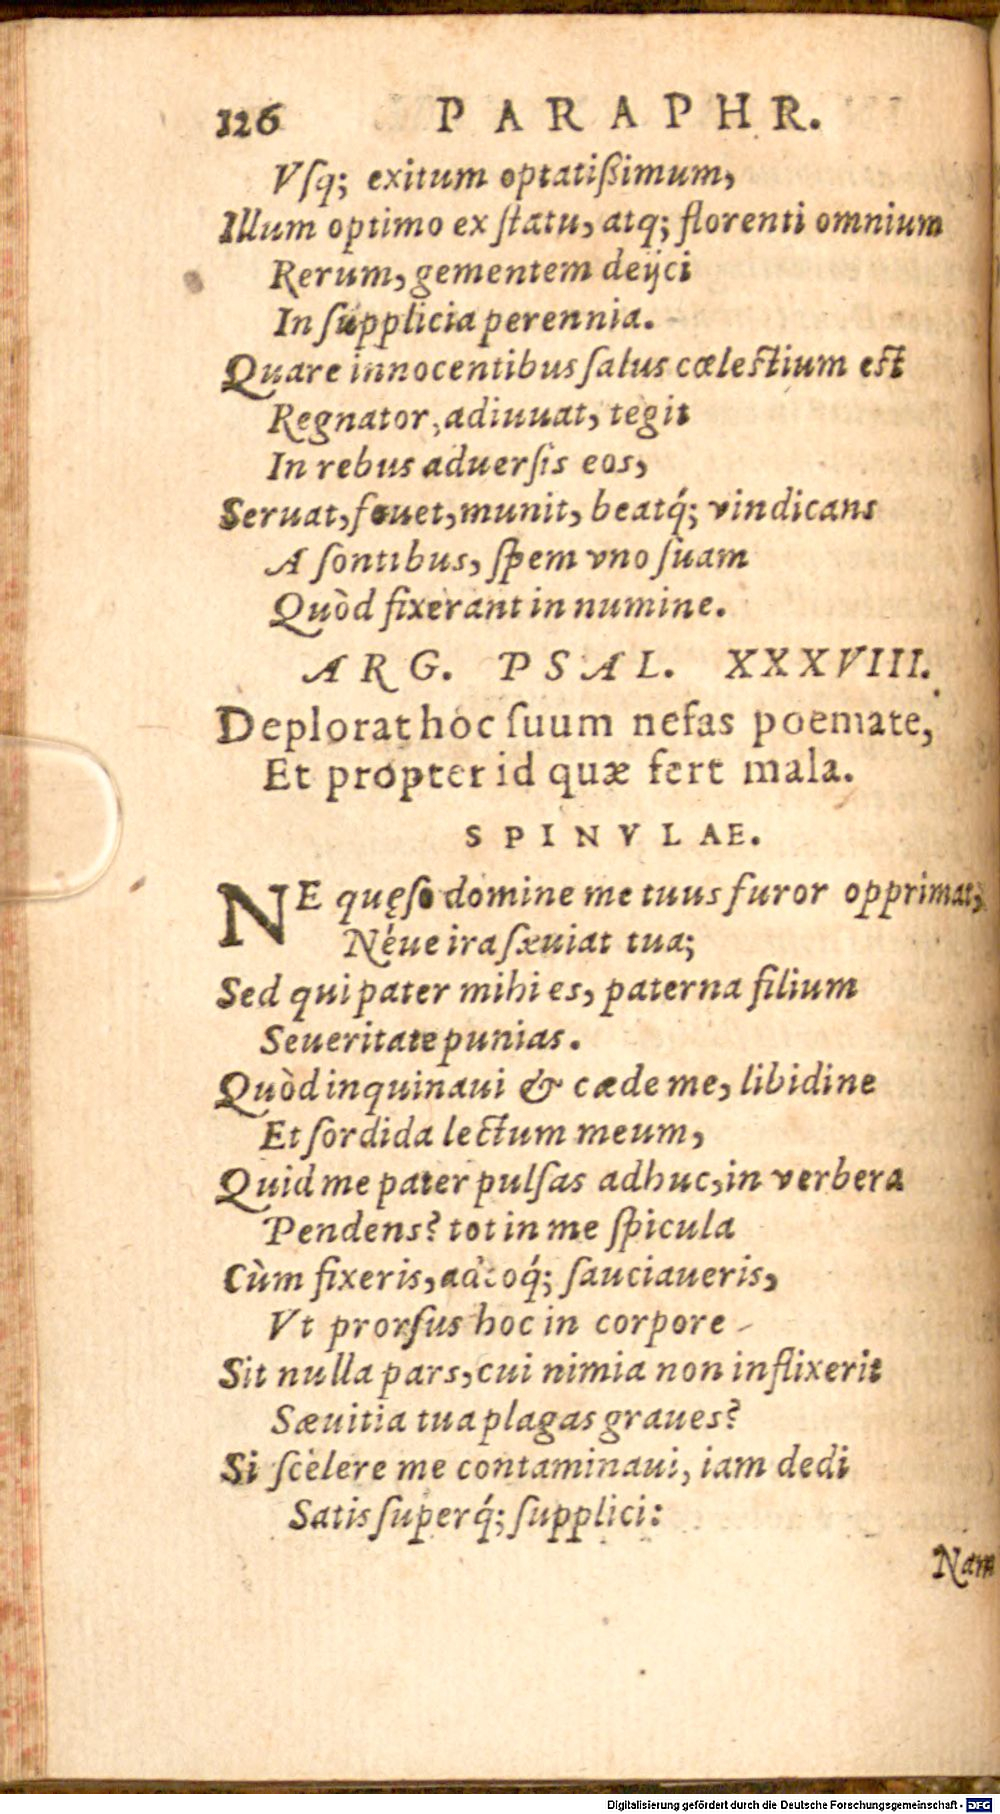 126 PARAPHR.
Vſq; exitum optatißimum,
Illum optimo ex ſtatu, atq; florenti omnium
Rerum, gementem deijci
In ſupplicia perennia.
Quare innocentibus ſalus cœleſtium eſt
Regnator, adiuuat, tegit
In rebus aduerſis eos,
Seruat, fouet, munit, beatq́; vindicans
A ſontibus, ſpem vno ſuam
Quòd fixerant in numine.
ARG. PSAL. XXXVIII.
Deplorat hoc ſuum nefas poemate,
Et propter id quæ fert mala.
SPINVLAE.
NE quęſo domine me tuus furor opprimat,
Néue ira ſæuiat tua;
Sed qui pater mihi es, paterna filium
Seueritate punias.
Quòd inquinaui & cæde me, libidine
Et ſordida lectum meum,
Quid me pater pulſas adhuc, in verbera
Pendens? tot in me ſpicula
Cùm fixeris, adeoq́; ſauciaueris,
Vt prorſus hoc in corpore
Sit nulla pars, cui nimia non inflixerit
Sæuitia tua plagas graues?
Si ſcelere me contaminaui, iam dedi
Satis ſuperq́; ſupplici:
Nam
Digitalisierung gefördert durch die Deutsche Forschungsgemeinschaft - DFG